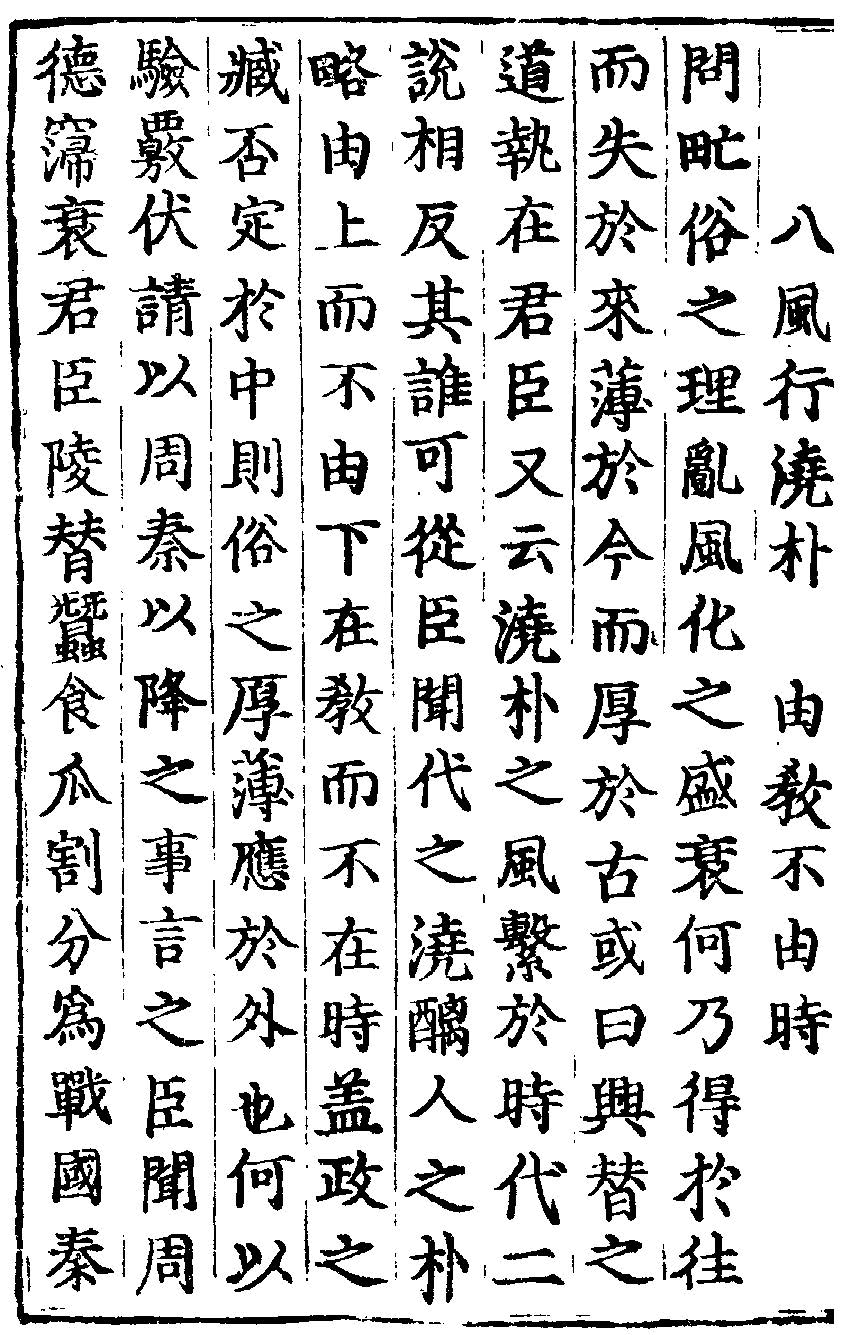 八風行澆朴　由教不由時
問甿俗之理亂風化之盛衰何乃得於往
而失於來薄於今而厚於古或曰興替之
道執在君臣又云澆朴之風繫於時代二
說相反其誰可從臣聞代之澆醨人之朴
略由上而不由下在教而不在時盖政之
臧否定於中則俗之厚薄應於外也何以
驗覈伏請以周秦以降之事言之臣聞周
德寖衰君臣陵替蠶食瓜割分爲戰國秦